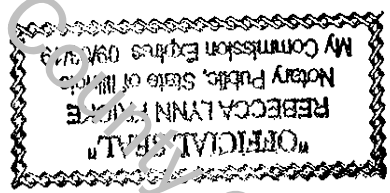 "OFFICIAL SEAL"
REBECCA LYNN
Notary Public, State of Illinois
My Commission Expires
County